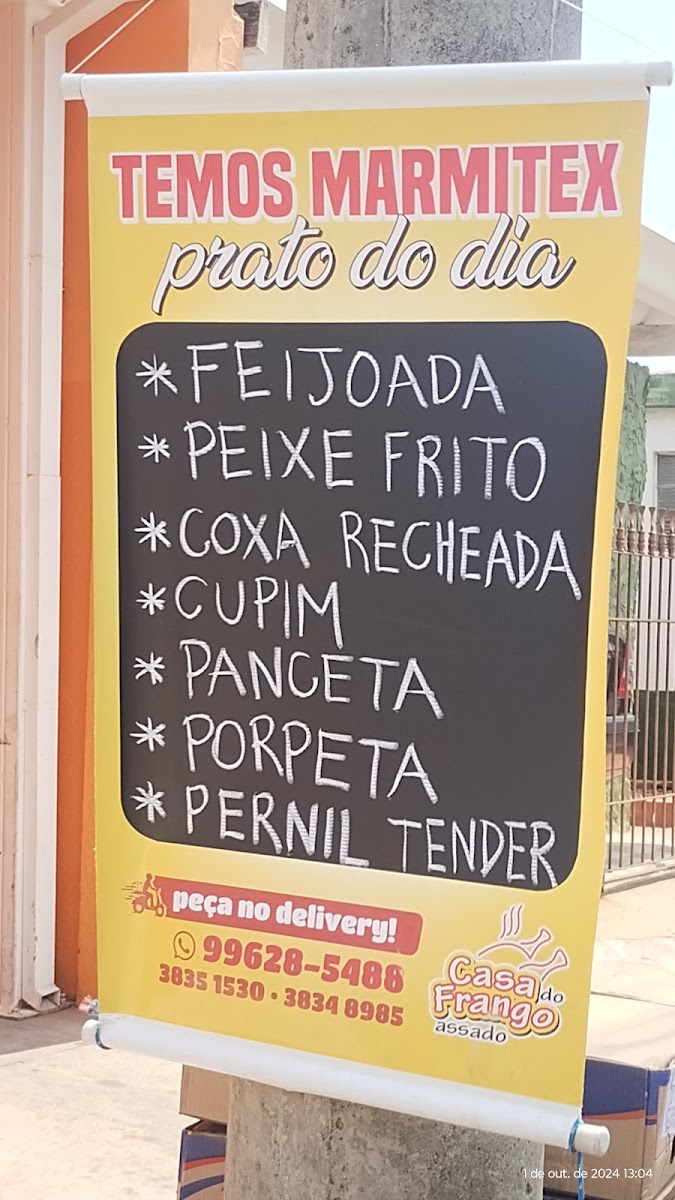 TEMOS MARMITEX
prato do dia
* FEIJOADA
* PEIXE FRITO
* COXA RECHEADA
* CUPIM
* PANCETA
* PORPETA
* PERNIL TENDER
peça no delivery!
99628-5488
3835 1530 • 3834 8985
Casa do
Frango
assado
1 de out. de 2024 13:04